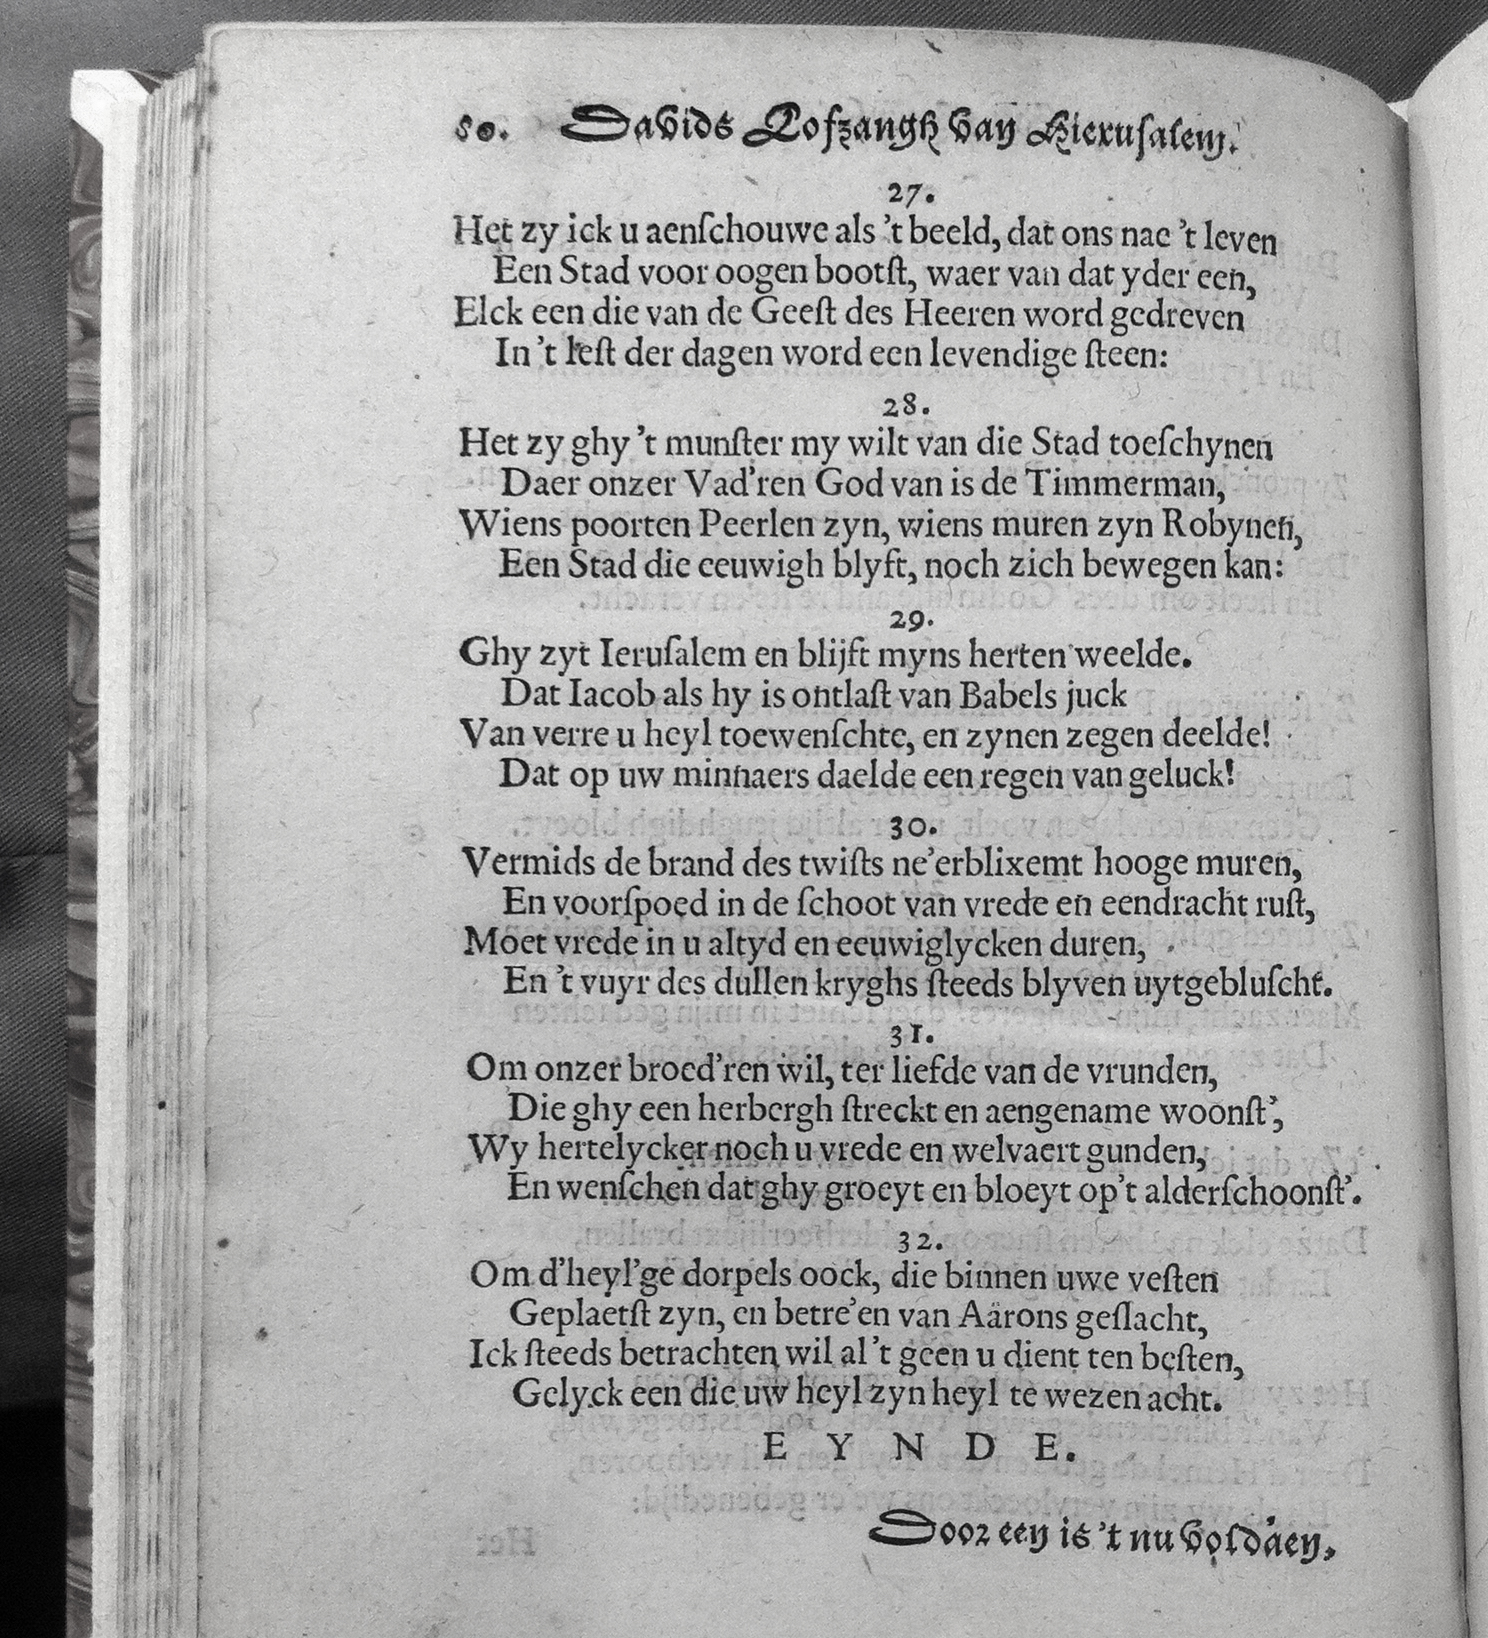 80. Davids Lofzangh van Hierusalem.
27.
Het zy ick u aenſchouwe als 't beeld, dat ons nae 't leven
Een Stad voor oogen bootſt, waer van dat yder een,
Elck een die van de Geeſt des Heeren word gedreven
In 't leſt der dagen word een levendige ſteen:
28.
Het zy ghy 't munſter my wilt van die Stad toeſchynen
Daer onzer Vad'ren God van is de Timmerman,
Wiens poorten Peerlen zyn, wiens muren zyn Robynen,
Een Stad die eeuwigh blyft, noch zich bewegen kan:
29.
Ghy zyt Ieruſalem en blijft myns herten weelde.
Dat Iacob als hy is ontlaſt van Babels juck
Van verre u heyl toewenſchte, en zynen zegen deelde!
Dat op uw minnaers daelde een regen van geluck!
30.
Vermids de brand des twiſts ne'erblixemt hooge muren,
En voorſpoed in de ſchoot van vrede en eendracht ruſt,
Moet vrede in u altyd en eeuwiglycken duren,
En 't vuyr des dullen kryghs ſteeds blyven uytgebluſcht.
31.
Om onzer broed'ren wil, ter liefde van de vrunden,
Die ghy een herbergh ſtreckt en aengename woonſt',
Wy hertelycker noch u vrede en welvaert gunden,
En wenſchen dat ghy groeyt en bloeyt op't alderſchoonſt'.
32.
Om d'heyl'ge dorpels oock, die binnen uwe veſten
Geplaetſt zyn, en betre'en van Aärons geſlacht,
Ick ſteeds betrachten wil al 't geen u dient ten beſten,
Gelyck een die uw heyl zyn heyl te wezen acht.
E Y N D E.
Door een is 't nu voldaen.